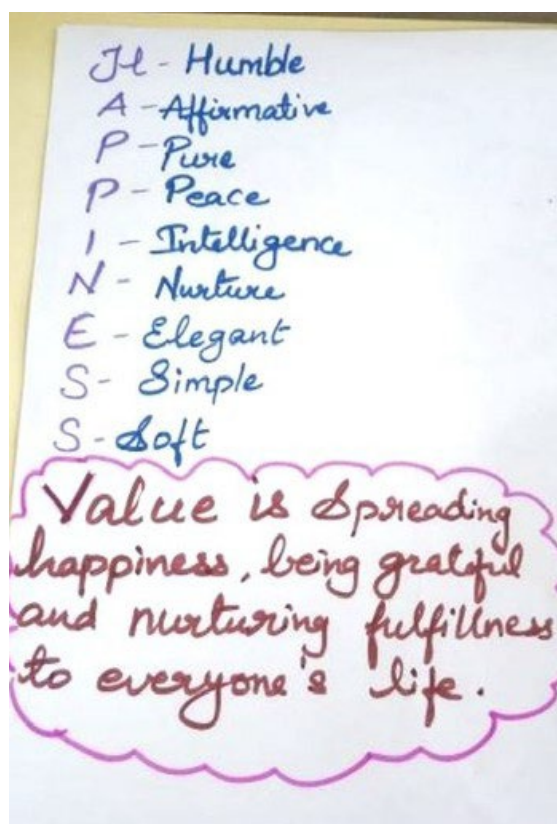 H - Humble
A - Affirmative
P - Pure
P - Peace
I - Intelligence
N - Nurture
E - Elegant
S - Simple
S - Soft
Value is Spreading
happiness, being grateful
and nurturing fulfillness
to everyone's life.